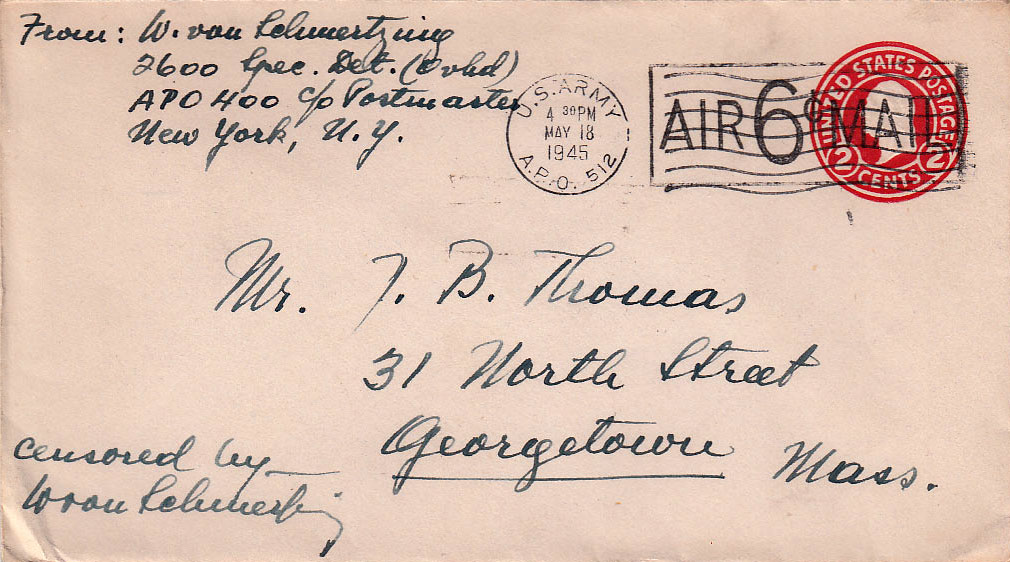 From: W. von Schmertzing
2600 Spec. Det. (Ovhd)
APO 400 c/o Postmaster
New York, N.Y.
U.S. ARMY
4 30PM
MAY 18
1945
A.P.O. 512
AIR 6¢ MAIL
UNITED STATES POSTAGE
2 CENTS 2
Mr. T. B. Thomas
31 North Street
Georgetown Mass.
censored by
W von Schmertzing